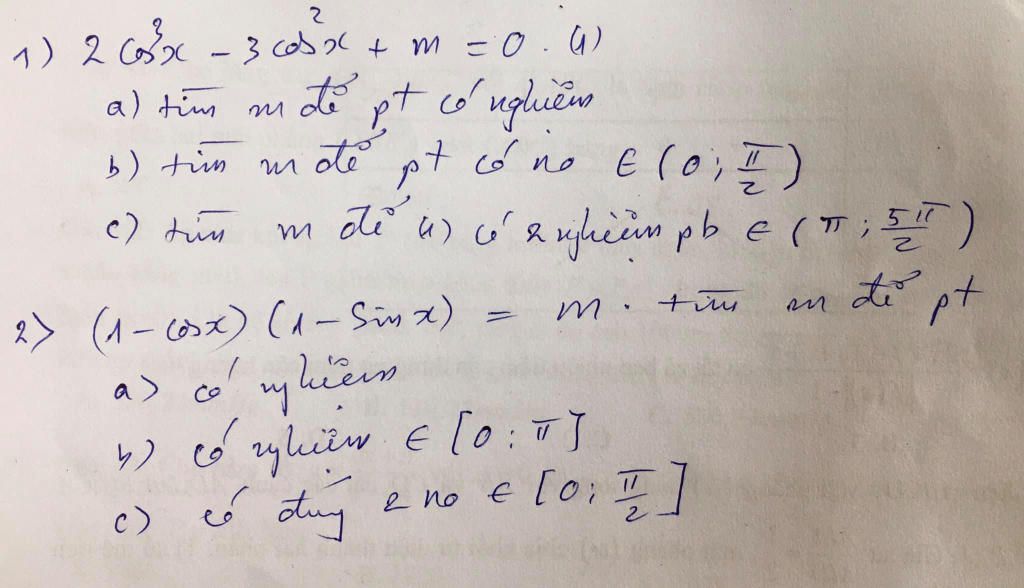 1) 2 cos³x - 3 cos²x + m = 0. (1)
a) tìm m để pt có nghiệm
b) tìm m để pt có no ∈ (0; π/2)
c) tìm m để (1) có 2 nghiệm pb ∈ (π; 5π/2)
2> (1-cosx)(1-Sinx) = m. tìm m để pt
a> có nghiệm
b) có nghiệm ∈ [0; π]
c) có đúng 2 no ∈ [0; π/2]